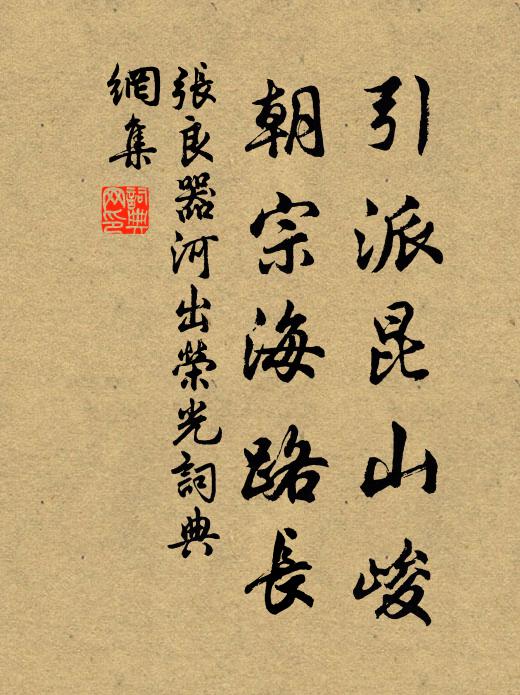 引派昆山峻
朝宗海路長
張良器河出榮光詞典
網集
詞典
网印